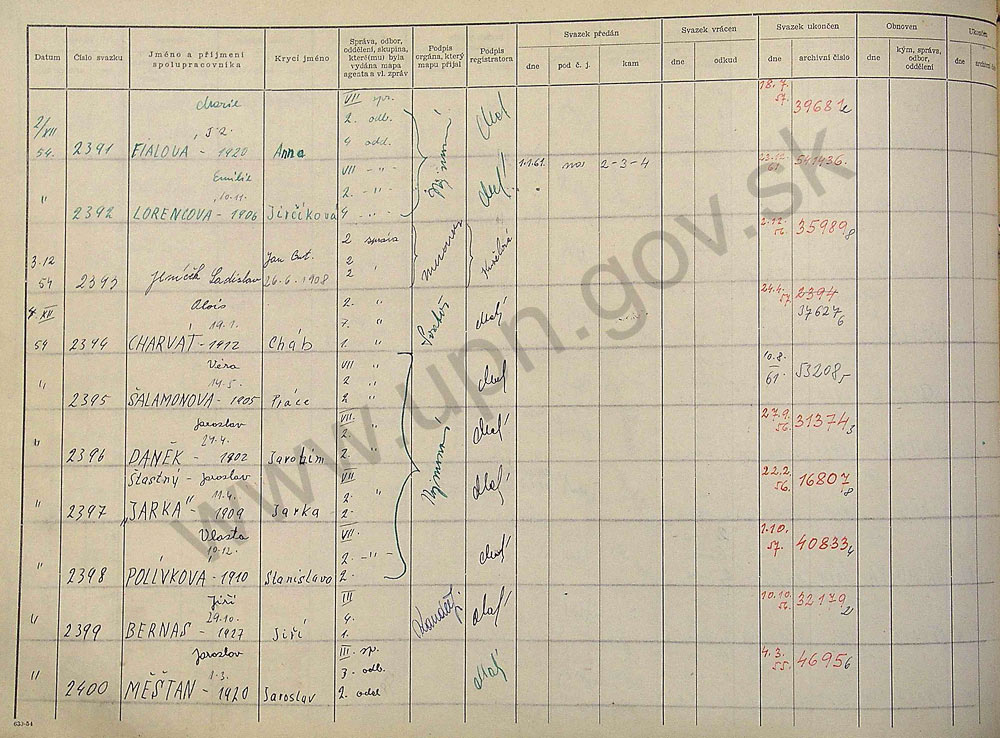 Datum Číslo svazku Jméno a příjmení spolupracovníka Krycí jméno Správa, odbor, oddělení, skupina, které(mu) byla vydána mapa agenta a vl. zpráv Podpis orgána, který mapu přijal Podpis registratora Svazek předán Svazek vrácen Svazek ukončen Obnoven Ukončen
dne pod č. j. kam dne odkud dne archivní číslo dne kým, správa, odbor, oddělení dne archivní číslo
Marie VII spr. 18.7.
2. odb. 57. 39681
2/XII
54. 2391 FIALOVA - 1920 Anna 4 odd.
VII - " - 1.1.61. nos 2-3-4 23.12. 541436.
Emilie 61
10.11. 2. - " -
" 2392 LORENCOVA - 1906 Jirčíkova 4 - " -
2 správa 2.12. 35989 8
56.
3.12 Jan 2
54 2393 Ladislav 26.6.1908 2 "
Alois 2. " 24.4. 2394
4 XII 19.1. 7. " 57. 37627 6
54 2394 CHARVÁT - 1912 Cháb 1. "
Věra VII " 10.8.
14.5. 2 " 61 53208
" 2395 ŠALAMONOVA - 1905 Práce 2 "
Jaroslav VII. " 27.9. 31374 3
24.4. 2. " 56.
" 2396 DANĚK - 1902 Jarolím 2. "
Šťastný - Jaroslav VII 22.2. 16807 8
11.4. 2. " 56.
" 2397 „JARKA" - 1909 Jarka 2-
Vlasta VII. 1.10. 40833
10.12. 2. - " - 57.
" 2398 POLÍVKOVA - 1910 Stanislavo 2.
Jiří III 10.10. 32179 2
29.10. 4. 56.
" 2399 BERNAS - 1927 Jiří 1.
Jaroslav III. sp. 4.3. 46956
1.3. 3. odb. 55.
" 2400 MĚŠŤAN - 1920 Jaroslav 2. odd
633-54
www.upn.gov.sk